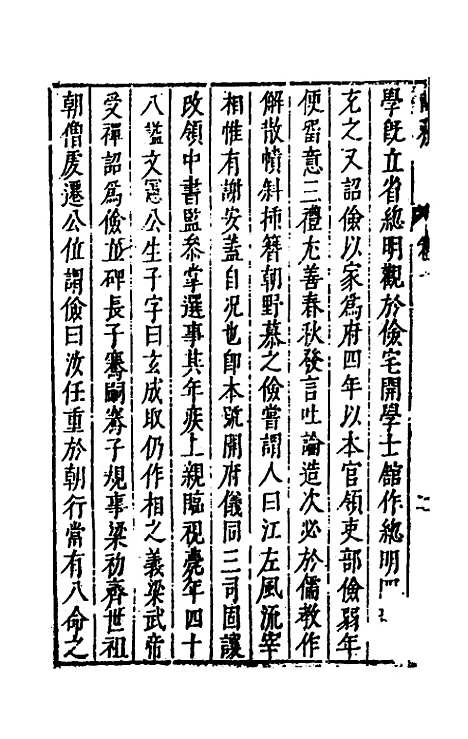 學旣立省總明觀於儉宅開學士館作總明四
充之又詔儉以家爲府四年以本官領吏部儉弱年
便留意三禮尤善春秋發言吐論造次必於儒教作
解散幘斜揷簪朝野慕之儉嘗謂人曰江左風流宰
相惟有謝安蓋自况也卽本號開府儀同三司固讓
改領中書監叅掌選事其年疾上親臨視薨年四十
八謚文憲公生子字曰玄成取仍作相之義梁武帝
受禪詔爲儉立碑長子騫嗣騫子規事梁初齊世祖
朝僧虔遷公位謂儉曰汝任重於朝行當有八命之